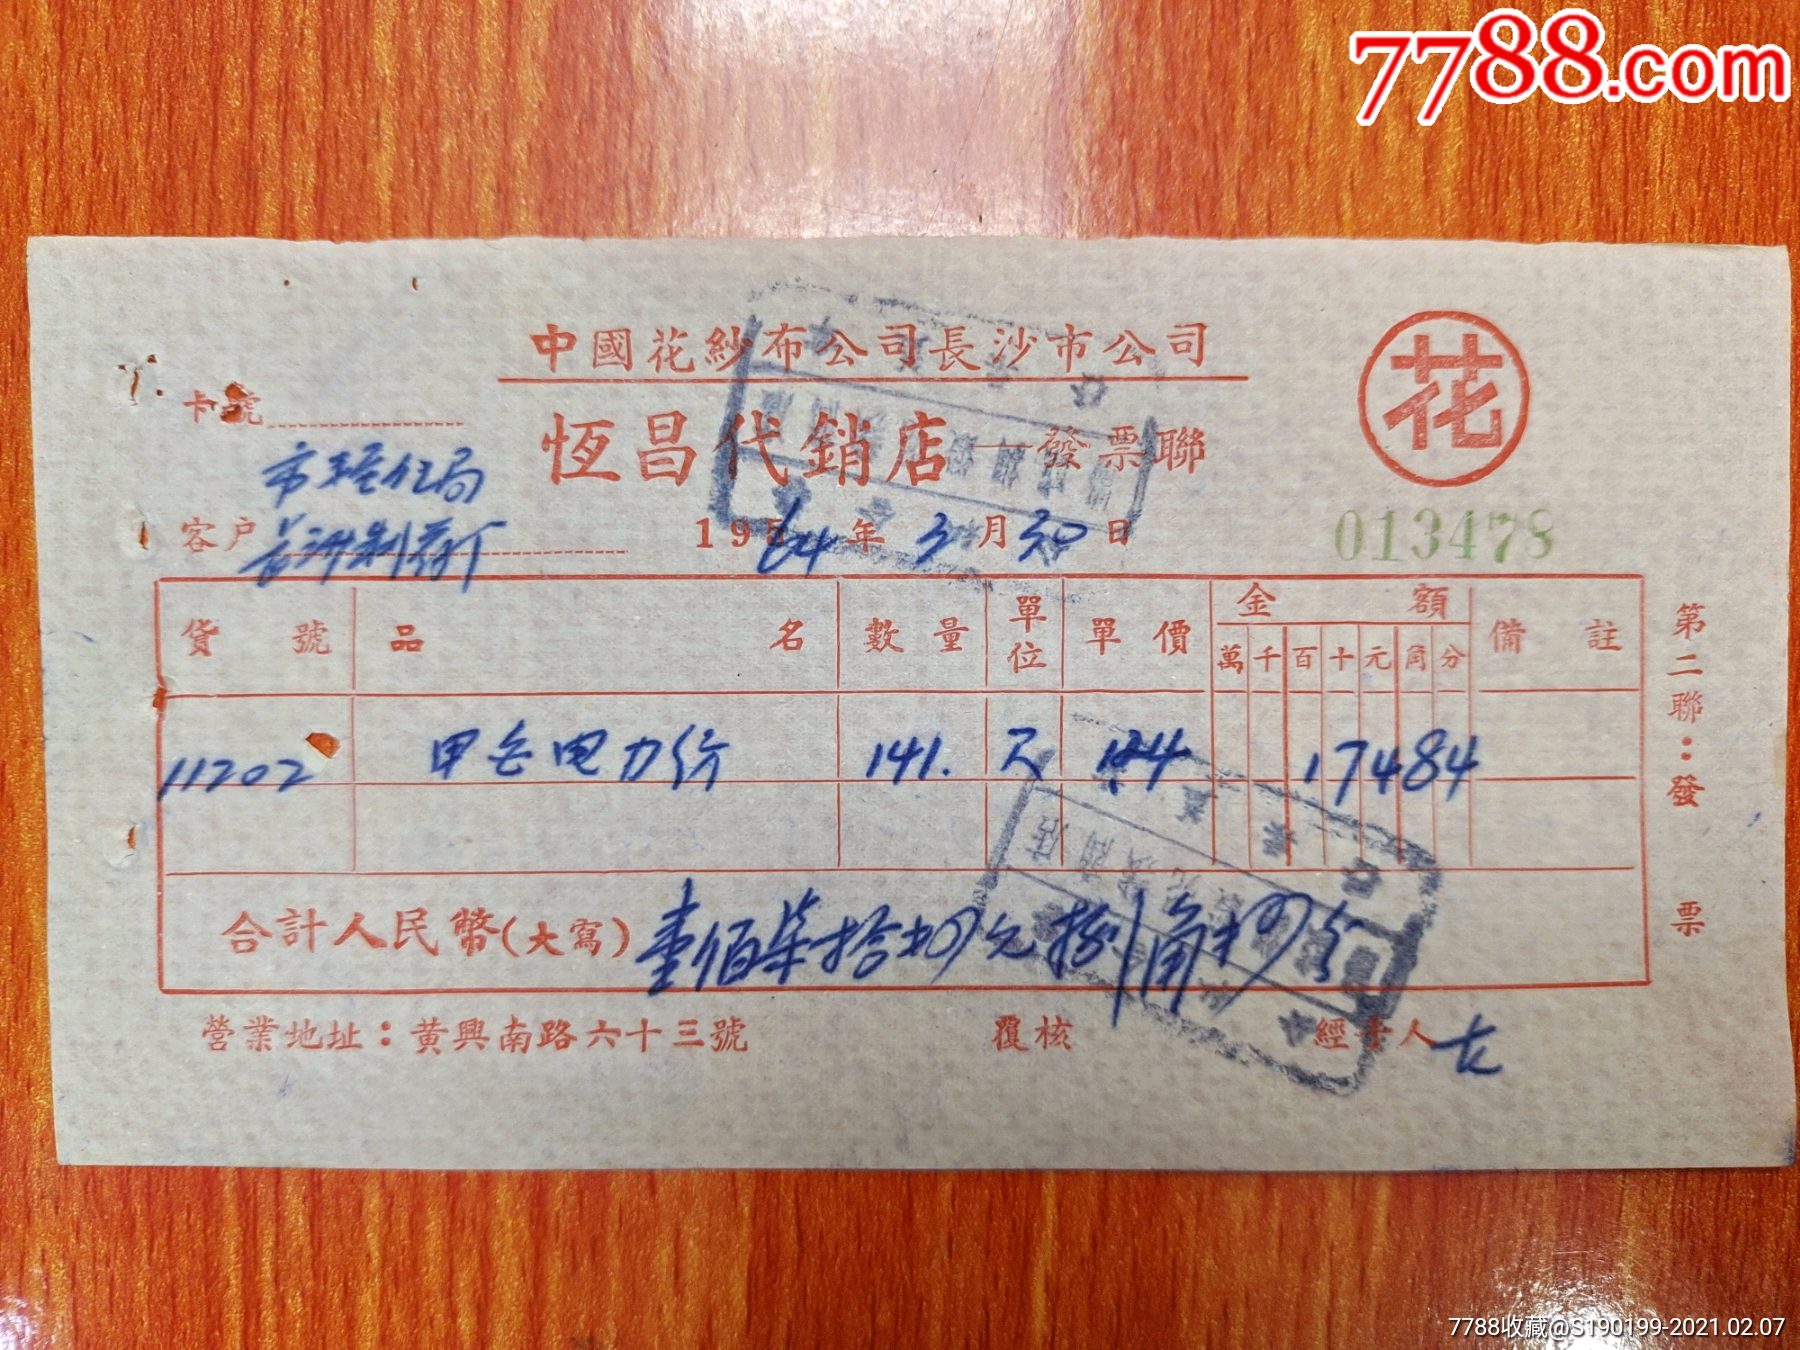 7788.com
中國花紗布公司長沙市公司
花
恆昌代銷店—發票聯
卡號
客户
1964年3月30日
013478
貨號 品名 數量 單位 單價 金額 備註
萬千百十元角分
11202 甲 电力纺 141. 尺 124 17484
合計人民幣(大寫) 壹佰柒拾肆元捌角肆分
第二聯：發票
營業地址：黃興南路六十三號 覆核 經手人
7788收藏@S190199-2021.02.07